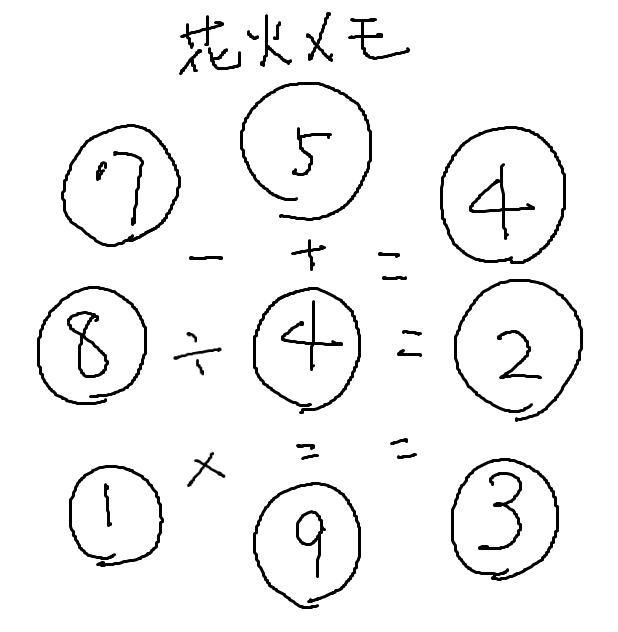 花火メモ
7 5 4
- + =
8 ÷ 4 = 2
× = =
1 9 3